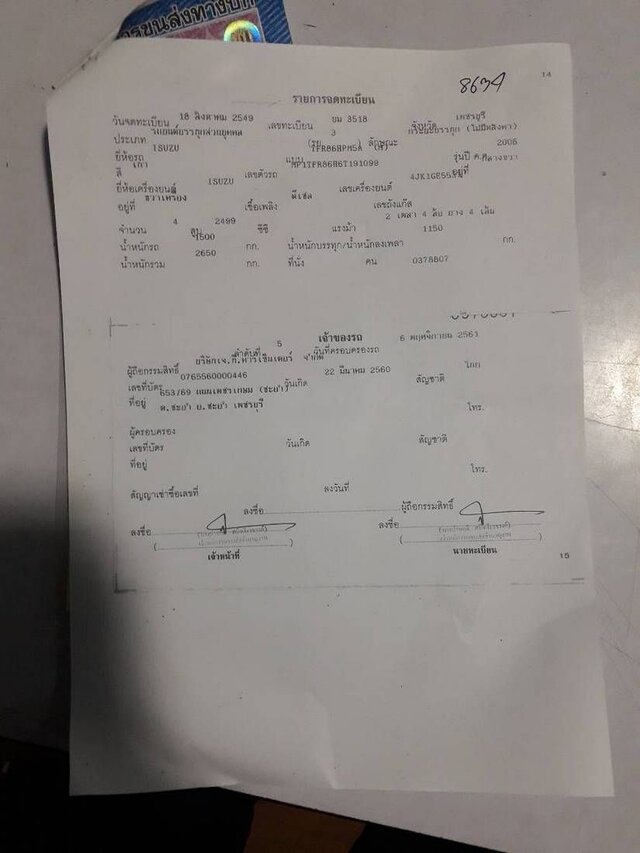 ารขนส่งทางบก
8634
14
รายการจดทะเบียน
วันจดทะเบียน 18 สิงหาคม 2549 เลขทะเบียน บม 3518 จังหวัด เพชรบุรี
ประเภท รถยนต์บรรทุกส่วนบุคคล (รย. 3 ) ลักษณะ กระบะบรรทุก (ไม่มีหลังคา)
ยี่ห้อรถ ISUZU แบบ TFR86HPM5A รุ่นปี ค.ศ. 2006
สี เทา เลขตัวรถ MP1TFR86H6T191099 อยู่ที่ กลางขวา
ยี่ห้อเครื่องยนต์ ISUZU เลขเครื่องยนต์
อยู่ที่ ขวาเครื่อง เชื้อเพลิง ดีเซล เลขถังแก๊ส
จำนวน 4 สูบ 2499 ซีซี แรงม้า 2 เพลา 4 ล้อ ยาง 4 เส้น
น้ำหนักรถ 1500 กก. น้ำหนักบรรทุก/น้ำหนักลงเพลา 1150 กก.
น้ำหนักรวม 2650 กก. ที่นั่ง คน 0378807
เจ้าของรถ
ลำดับที่ 5 วันที่ครอบครองรถ 6 พฤศจิกายน 2561
ผู้ถือกรรมสิทธิ์ จำกัด
เลขที่บัตร 0765560000446 วันเกิด 22 มีนาคม 2560 สัญชาติ ไทย
ที่อยู่ 653/69 ถนนเพชรเกษม (ชะอำ) โทร.
ต.ชะอำ อ.ชะอำ เพชรบุรี
ผู้ครอบครอง
เลขที่บัตร วันเกิด สัญชาติ
ที่อยู่ โทร.
สัญญาเช่าซื้อเลขที่ ลงวันที่
ลงชื่อ ผู้ถือกรรมสิทธิ์
ลงชื่อ ลงชื่อ
เจ้าหน้าที่ นายทะเบียน
15